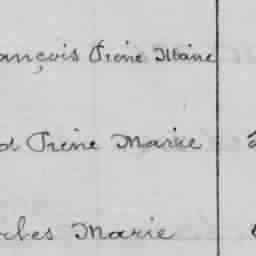 ançois Irène Marie
d Irène Marie
rles Marie